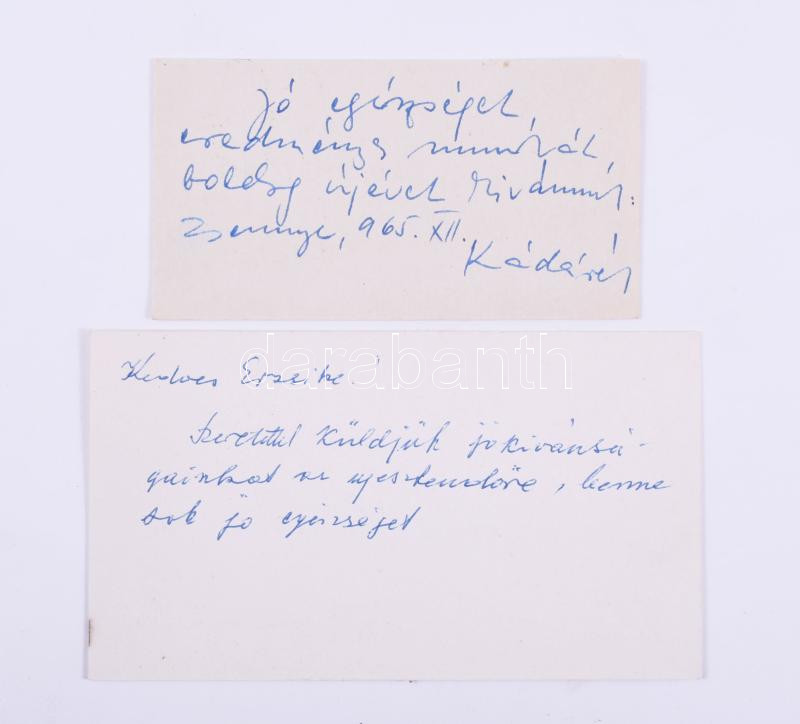 Jó egészséget,
eredményes munkát,
boldog újévet kívánunk:
Zsennye, 965. XII.
Kádárék
darabanth
Kedves Erzsike!
Szeretettel küldjük jókívánsá-
gainkat az ujesztendőre, benne
sok jó egészséget